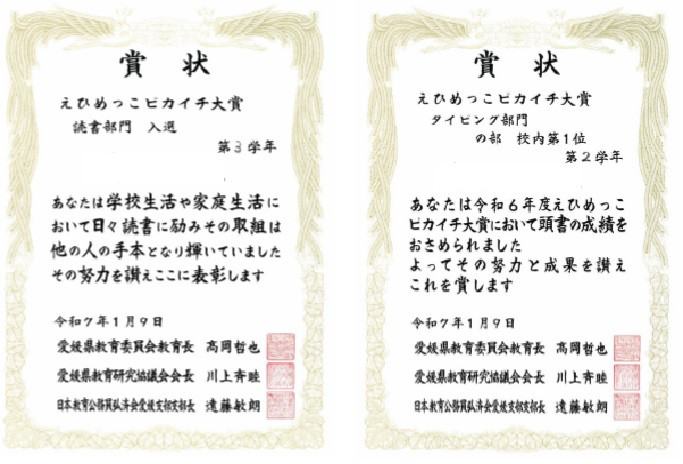 賞状
えひめっこピカイチ大賞
読書部門 入選
第3学年
あなたは学校生活や家庭生活に
おいて日々読書に励みその取組は
他の人の手本となり輝いていました
その努力を讃えここに表彰します
令和7年1月9日
愛媛県教育委員会教育長 髙岡哲也
愛媛県教育研究協議会会長 川上斉睦
日本教育公務員弘済会愛媛支部支部長 遠藤敏朗
賞状
えひめっこピカイチ大賞
タイピング部門
の部 校内第1位
第2学年
あなたは令和6年度えひめっこ
ピカイチ大賞において頭書の成績を
おさめられました
よってその努力と成果を讃え
これを賞します
令和7年1月9日
愛媛県教育委員会教育長 髙岡哲也
愛媛県教育研究協議会会長 川上斉睦
日本教育公務員弘済会愛媛支部支部長 遠藤敏朗